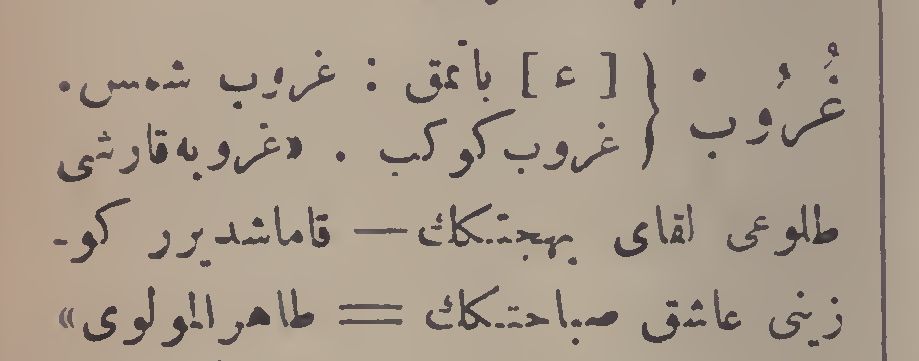 غُرُوب · { [ ع ] باتمق : غروب شمس .
غروب كوكب . «غروبه قارشى
طلوعى لقاى بهجتكك — قاماشديرر كو-
زينى عاشق صباحتكك = طاهر المولوى»